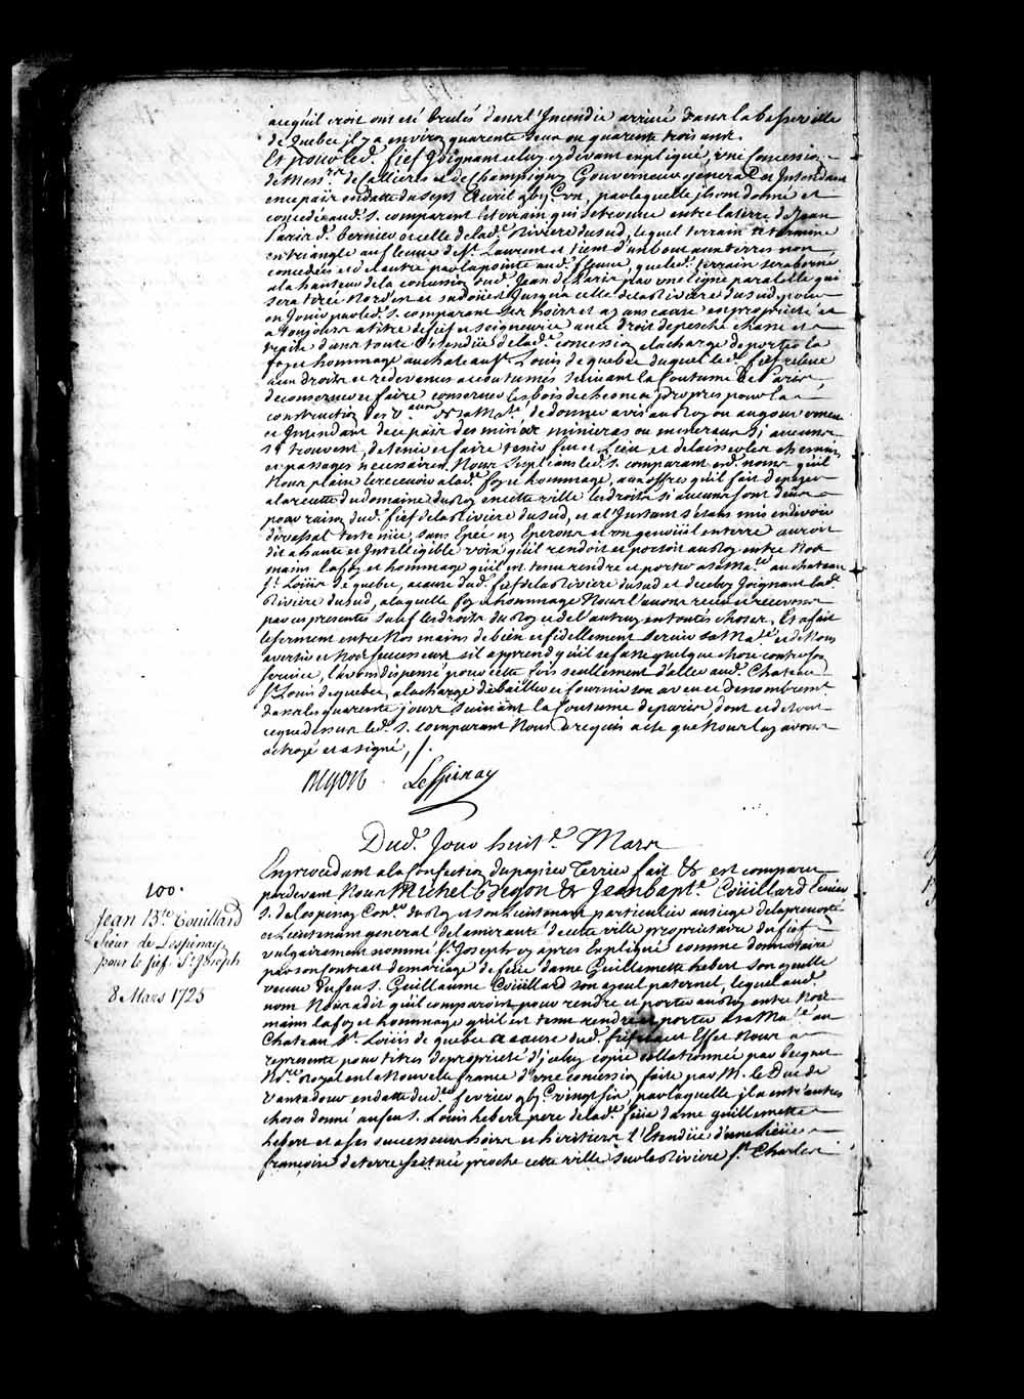 ce qu'il croit ont été brulés dans l'Incendie arrivé dans la basse ville
de Quebec il y a environ quarente deux ou quarente trois ans.
Et pour led. fief Joignant celuy cy devant expliqué, une Concession
de Mess.rs de Callieres et de Champigny Gouverneur general et Intendant
en ce pais en datte du sept Avril par laquelle ils ont donné et
concedé aud. S. comparant le terrain qui se trouve entre la terre de Jean
Paris d. bernier et celle de lad.e Riviere du sud, lequel terrain se termine
en triangle au fleuve de S.t Laurent et tient d'un bout aux terres non
concedées et d'autre par la pointe aud. fleuve, que led. terrain sera borné
a la hauteur de la concession dud. Jean de Paris par une ligne paralelle qui
sera tirée Nordest et sudoüest Jusqu'a celle de la Riviere du sud, pour
en Jouir par led. S. comparant ses hoirs et ayans cause en proprieté et
a toujours a titre de fief et seigneurie avec droit de pesche chasse et
traite dans toute l'etendüe de lad.e concession a la charge de porter la
foy et hommage au chateau S.t Louis de quebec duquel led. fief releve
aux droits et redevances accoutumés suivant la Coutume de Paris
de conserver et faire conserver les bois de chesne propres pour la
construction des V.aux de sa Ma.té de donner avis au Roy ou au gouverneur
et Intendant de ce pais des mines minieres ou mineraux si aucuns
s'y trouvent, de tenir et faire tenir feu et Lieu et de laisser les chemins
et passages necessaires. Nous Supliant led. S. comparant aud. noms qu'il
Nous plaise le recevoir a lad. foy et hommage, aux offres qu'il fait de payer
a la recette du domaine du Roy en cette ville les droits si aucuns sont deüs
pour raison dud. fief de la Riviere du sud, et a l'Instant s'etans mis en devoir
de vassal teste nüe, sans Epée ny Eperons et un genoüil en terre auroit
dit a haute et Intelligible voix qu'il rendoit et portoit au Roy entre Nos
mains la foy et hommage qu'il est tenu rendre et porter a sa Ma.té au chateau
S.t Loüis de quebec, a cause dud. fief de la Riviere du sud et de celuy Joignant lad.e
Riviere du sud, a laquelle foy et hommage Nous l'avons receu et recevons
par ces presentes sauf les droits du Roy et de l'autruy en toutes choses, Et a fait
le serment entre Nos mains de bien et fidellement servir sa Ma.té et de Nous
avertir et Nos successeurs s'il apprend qu'il se fasse quelque chose contre son
service, l'avons dispensé pour cette fois seullement d'aller aud. Chateau
S.t Louis de quebec, a la charge de bailler et fournir son aveu et denombrement
dans les quarente jours suivant la Coutume de paris dont et de tout
ce que dessus led. S. comparant Nous a requis acte que Nous luy avons
octroyé et a signé, /.
Begon Lespinay
Dud. Jour huit.e Mars
En procedant a la Confection du papier Terrier fait &c est comparu
pardevant Nous Michel Begon &c Jean bapt.e Coüillard Ecuier
S. de Lespinay Con.er du Roy et son Lieutenant particulier au siege de la prevosté
et Lieutenant general de l'amirauté de cette ville proprietaire du fief
vulgairement nommé S.t Joseph cy apres Expliqué comme donnataire
par son Contract de mariage de feüe dame Guillemette hebert son ayeulle
veuve du feu S. Guillaume Coüillard son ayeul paternel, lequel aud.
nom Nous a dit qu'il comparoist pour rendre et porter au Roy entre Nos
mains la foy et hommage qu'il est tenu rendre et porter a sa Ma.té au
Chateau S.t Loüis de quebec a cause dud. fief et a cet Effet Nous a
representé pour titres de proprieté d'jceluy copie collationnée par becquet
No.re Royal en la Nouvelle france d'une concession faite par M. le Duc de
Vantadour en datte du fevrier vingt six, par laquelle il a entr'autres
choses donné au feu S. Louis hebert pere de lad. feüe dame guillemette
hebert et a ses successeurs hoirs et heritiers l'Etendüe d'une lieüe
françoise de terre situeé proche cette ville sur la Riviere S.t Charles
100.
Jean B.te Couillard
Sieur de Lespinay
pour le fief S.t Joseph
8 Mars 1725